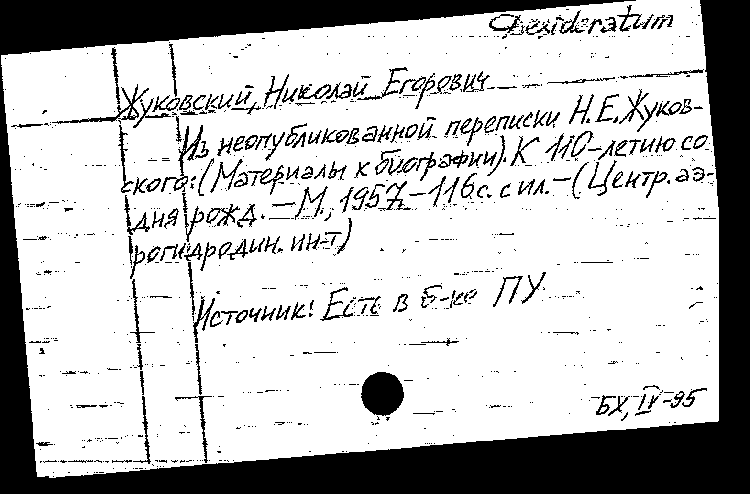 Desideratum
Жуковский, Николай Егорович
Из неопубликованной переписки Н.Е. Жуков-
ского: (Материалы к биографии). К 110-летию со
дня рожд. — М., 1957. — 116 с. с ил. — (Центр. аэ-
рогидродин. ин-т)
Источник: Есть в б-ке ПУ
БХ, IV-95